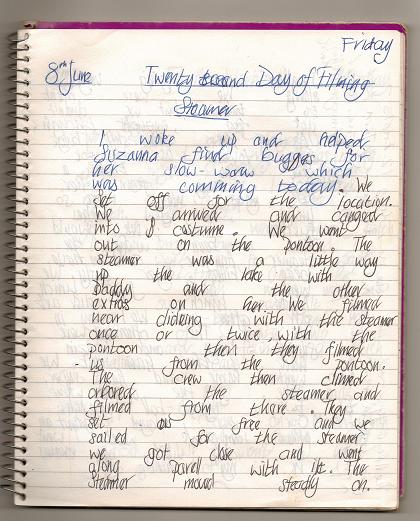 Friday
8th June Twenty second Day of Filming
Steamer
I woke up and helped
Suzanna find bugges for
her slow-worm which
was comming today. We
set off for the location.
We arrived and canged
into costume. We went
out on the pontoon. The
steamer was a little way
up the lake with
Daddy and the other
extras on her. We filmed
near clicking with the steamer
once or twice, with the
pontoon then they filmed
us from the pontoon.
The crew then climed
arbored the steamer and
filmed from there. They
set us free and we
sailed for the steamer
we got close and went
along parell with it. The
Steamer moud steadly on.